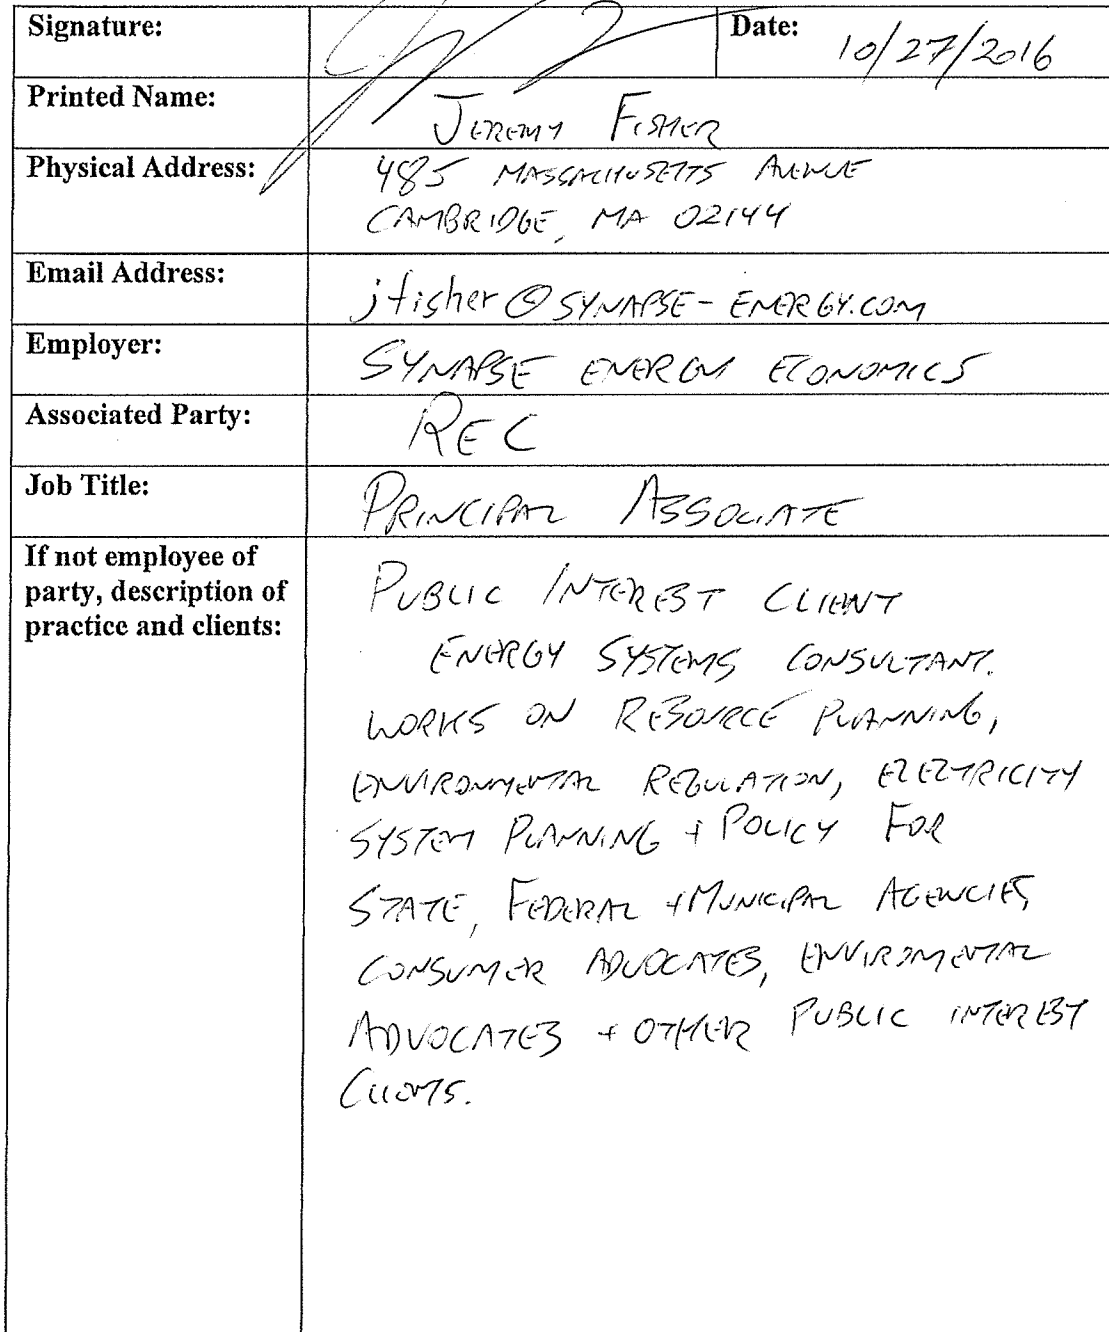 Signature: Date: 10/27/2016
Printed Name: JEREMY FISHER
Physical Address: 485 MASSACHUSETTS AVENUE
CAMBRIDGE, MA 02144
Email Address: jfisher@SYNAPSE-ENERGY.COM
Employer: SYNAPSE ENERGY ECONOMICS
Associated Party: REC
Job Title: PRINCIPAL ASSOCIATE
If not employee of
party, description of
practice and clients:
PUBLIC INTEREST CLIENT
ENERGY SYSTEMS CONSULTANT.
WORKS ON RESOURCE PLANNING,
ENVIRONMENTAL REGULATION, ELECTRICITY
SYSTEM PLANNING + POLICY FOR
STATE, FEDERAL + MUNICIPAL AGENCIES,
CONSUMER ADVOCATES, ENVIROMENTAL
ADVOCATES + OTHER PUBLIC INTEREST
CLIENTS.